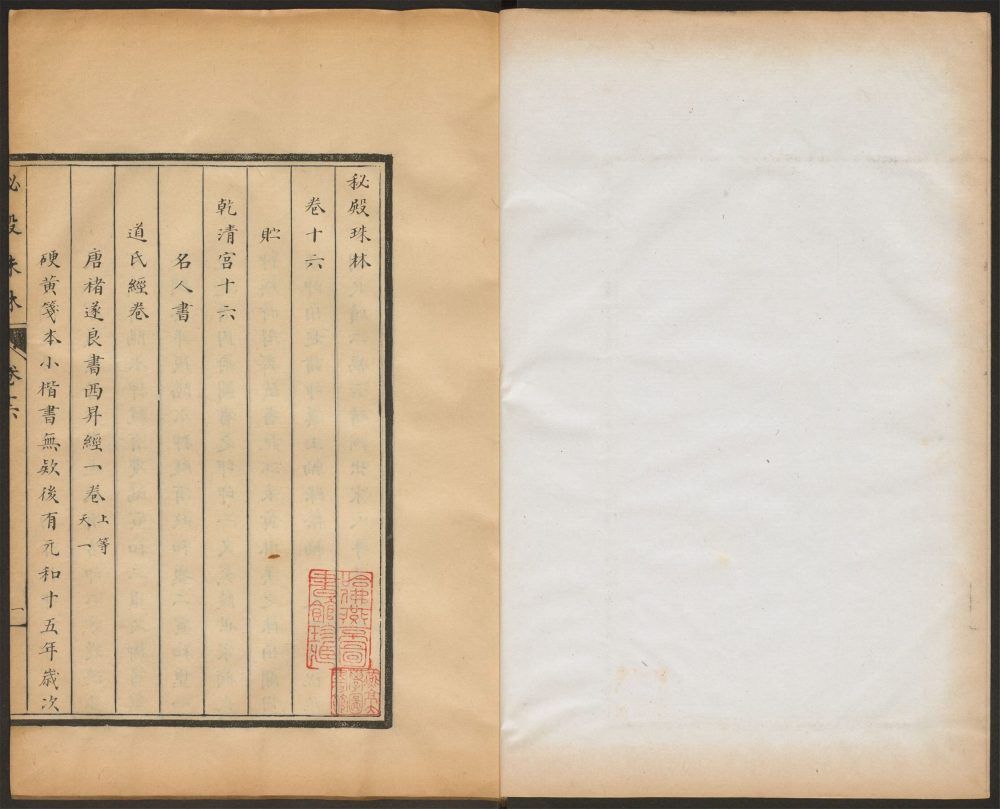 秘殿珠林
卷十六
貯
乾清宮十六
名人書
道氏經卷
唐褚遂良書西昇經一卷 上等 天一
硬黃箋本小楷書無欵後有元和十五年歳次
秘殿珠林 卷十六 一
哈佛燕京圖書館珍藏